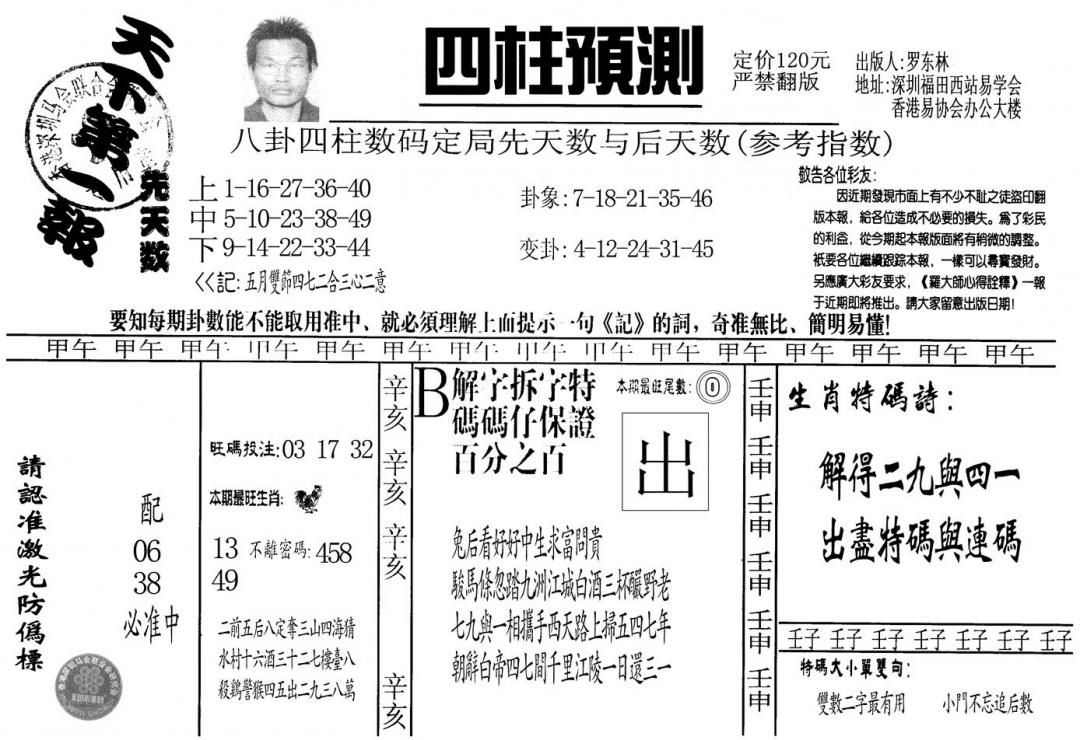 天下第一報
四柱預測
定价120元
严禁翻版
出版人:罗东林
地址:深圳福田西站易学会
香港易协会办公大楼
八卦四柱数码定局先天数与后天数(参考指数)
先天数
上1-16-27-36-40
中5-10-23-38-49
下9-14-22-33-44
<<記:五月雙節四七二合三心二意
卦象:7-18-21-35-46
变卦:4-12-24-31-45
敬告各位彩友:
因近期發現市面上有不少不耻之徒盜印翻
版本報,給各位造成不必要的損失。爲了彩民
的利益,從今期起本報版面將有稍微的調整。
祇要各位繼續跟踪本報,一樣可以尋寶發財。
另應廣大彩友要求,《羅大師心得詮釋》一報
于近期即將推出。請大家留意出版日期!
要知每期卦數能不能取用准中、就必須理解上面提示一句《記》的詞,奇准無比、簡明易懂!
甲午 甲午 甲午 甲午 甲午 甲午 甲午 甲午 甲午 甲午 甲午 甲午 甲午 甲午 甲午
請認准激光防僞標
配
06
38
必准中
旺碼投注:03 17 32
本期最旺生肖:
13 不離密碼:458
49
二前五后八定奪三山四海猜
水村十六酒三十二七樓臺八
殺鷄警猴四五出二九三八萬
辛亥
辛亥
辛亥
辛亥
B解字拆字特
碼碼仔保證
百分之百
本期最旺尾數:0
出
兔后看好好中生求富問貴
駿馬條忽踏九洲江城白酒三杯釅野老
七九與一相攜手西天路上掃五四七年
朝辭白帝四七間千里江陵一日還三一
壬申
壬申
壬申
壬申
壬申
壬申
生肖特碼詩:
解得二九與四一
出盡特碼與連碼
壬子 壬子 壬子 壬子 壬子 壬子 壬子
特碼大小單雙句:
雙數二字最有用 小門不忘追后數